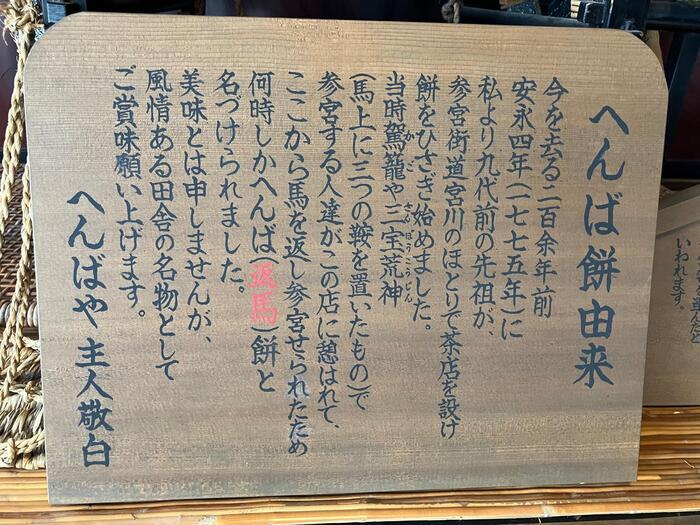 へんば餅由来
今を去る二百余年前
安永四年(一七七五年)に
私より九代前の先祖が、
参宮街道宮川のほとりで茶店を設け
餅をひさぎ始めました。
当時駕籠や三宝荒神
かご さんぽうこうじん
(馬上に三つの鞍を置いたもの)で
参宮する人達がこの店に憩はれて、
ここから馬を返し参宮せられたため
何時しかへんば(返馬)餅と
名づけられました。
美味とは申しませんが、
風情ある田舎の名物として
ご賞味願い上げます。
へんばや 主人敬白
いわれます。